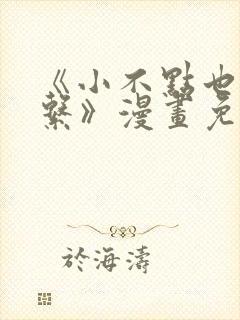 《小不點也
繫》漫畫免
於海濤